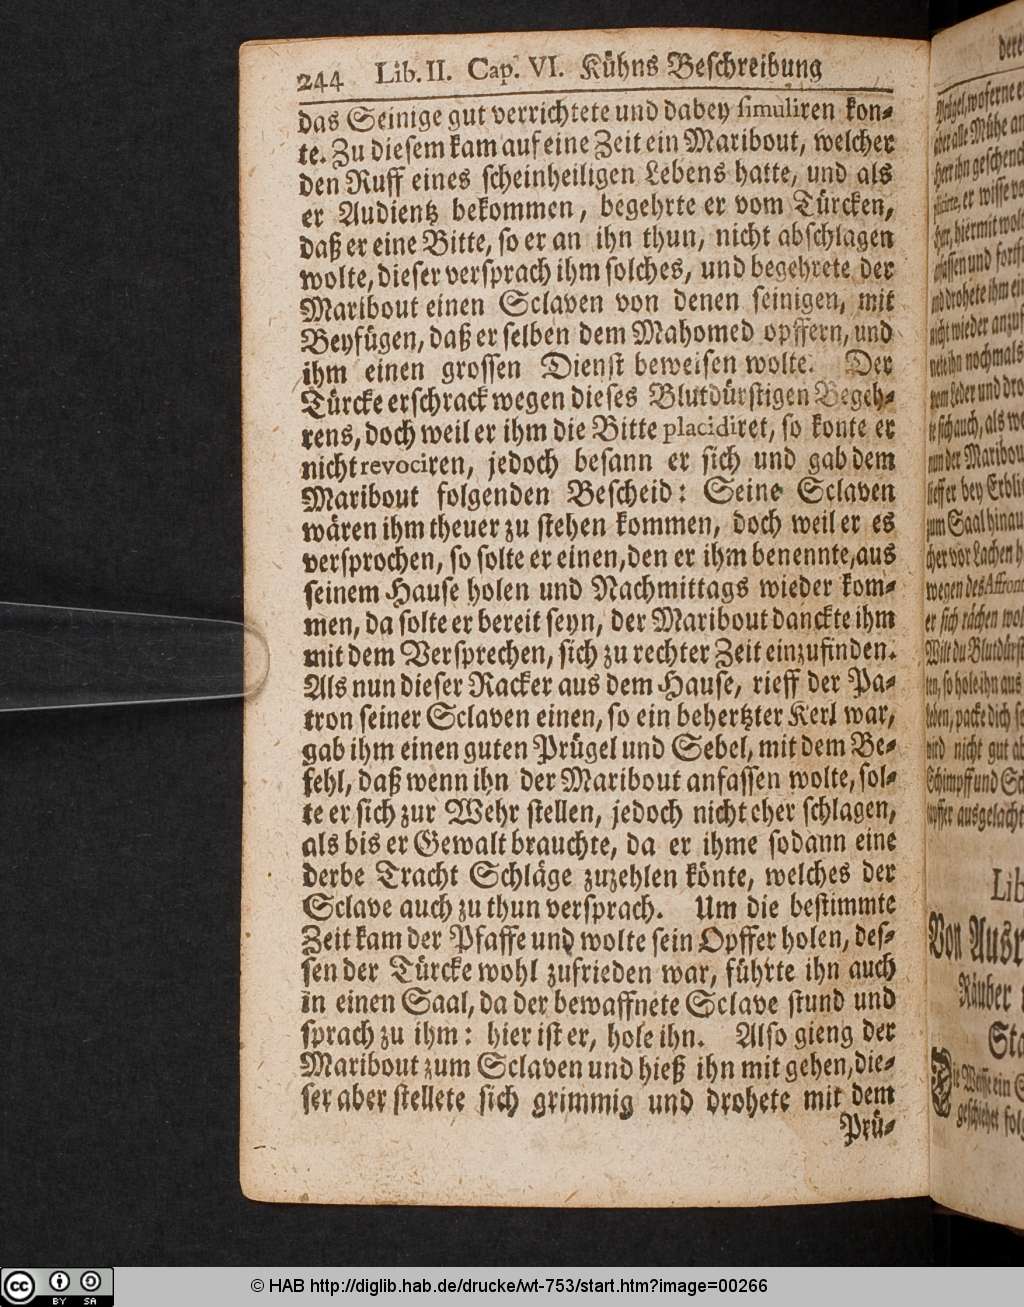 244 Lib. II. Cap. VI. Kühns Beschreibung
das Seinige gut verrichtete und dabey simuliren kon-
te. Zu diesem kam auf eine Zeit ein Maribout, welcher
den Ruff eines scheinheiligen Lebens hatte, und als
er Audientz bekommen, begehrte er vom Türcken,
daß er eine Bitte, so er an ihn thun, nicht abschlagen
wolte, dieser versprach ihm solches, und begehrete der
Maribout einen Sclaven von denen seinigen, mit
Beyfügen, daß er selben dem Mahomed opffern, und
ihm einen grossen Dienst beweisen wolte. Der
Türcke erschrack wegen dieses Blutdürstigen Begeh-
rens, doch weil er ihm die Bitte placidiret, so konte er
nicht revociren, jedoch besann er sich und gab dem
Maribout folgenden Bescheid: Seine Sclaven
wären ihm theuer zu stehen kommen, doch weil er es
versprochen, so solte er einen, den er ihm benennte, aus
seinem Hause holen und Nachmittags wieder kom-
men, da solte er bereit seyn, der Maribout danckte ihm
mit dem Versprechen, sich zu rechter Zeit einzufinden.
Als nun dieser Racker aus dem Hause, rieff der Pa-
tron seiner Sclaven einen, so ein behertzter Kerl war,
gab ihm einen guten Prügel und Sebel, mit dem Be-
fehl, daß wenn ihn der Maribout anfassen wolte, sol-
te er sich zur Wehr stellen, jedoch nicht eher schlagen,
als bis er Gewalt brauchte, da er ihme sodann eine
derbe Tracht Schläge zuzehlen könte, welches der
Sclave auch zu thun versprach. Um die bestimmte
Zeit kam der Pfaffe und wolte sein Opffer holen, des-
sen der Türcke wohl zufrieden war, führte ihn auch
in einen Saal, da der bewaffnete Sclave stund und
sprach zu ihm: hier ist er, hole ihn. Also gieng der
Maribout zum Sclaven und hieß ihn mit gehen, die-
ser aber stellete sich grimmig und drohete mit dem
Prü-
© HAB http://diglib.hab.de/drucke/wt-753/start.htm?image=00266
cc BY SA